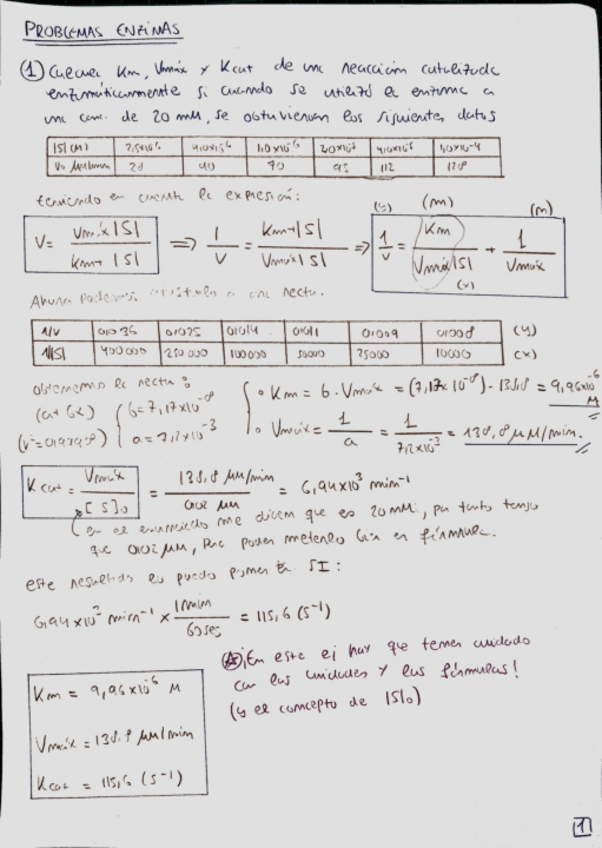 PROBLEMAS ENZINAS
① Calcular Km, Vmáx y Kcat de una reacción catalizada
enzimáticamente si cuando se utilizó la enzima a
una conc. de 20 mM, se obtuvieron los siguientes datos
|S|(M) 2,5x10⁻⁶ 4,0x10⁻⁶ 1,0x10⁻⁵ 2,0x10⁻⁵ 4,0x10⁻⁵ 1,0x10⁻⁴
28 40 70 95 112 128
teniendo en cuenta la expresión:
V = Vmáx|S| / Km+|S| ⟹ 1/V = Km+|S| / Vmáx|S| ⟹ 1/V = Km / Vmáx|S| + 1 / Vmáx
(m) (m)
(x)
Ahora podemos una recta.
1/V 0,036 0,025 0,014 0,011 0,009 0,008 (y)
1/|S| 400000 250000 100000 50000 25000 10000 (x)
obtenemos la recta:
(a+bx) b=7,17x10⁻⁸ ∘ Km = b·Vmáx = (7,17x10⁻⁸)·138,8 = 9,96x10⁻⁶ M
a=7,2x10⁻³ ∘ Vmáx = 1/a = 1/7,2x10⁻³ = 138,8 μM/min.
Kcat = Vmáx/[S]₀ = 138,8 μM/min / 0,02 μM = 6,94x10³ min⁻¹
en el enunciado me dicen que es 20 mM, por tanto tengo
que 0,02 μM, para poder meterlo en fórmula.
este resultado lo puedo poner en SI:
6,94x10³ min⁻¹ x 1min/60seg = 115,6 (s⁻¹)
¡En este ej hay que tener cuidado
con las unidades y las fórmulas!
(y el concepto de |S|₀)
Km = 9,96x10⁻⁶ M
Vmáx = 138,8 μM/min
Kcat = 115,6 (s⁻¹)
1